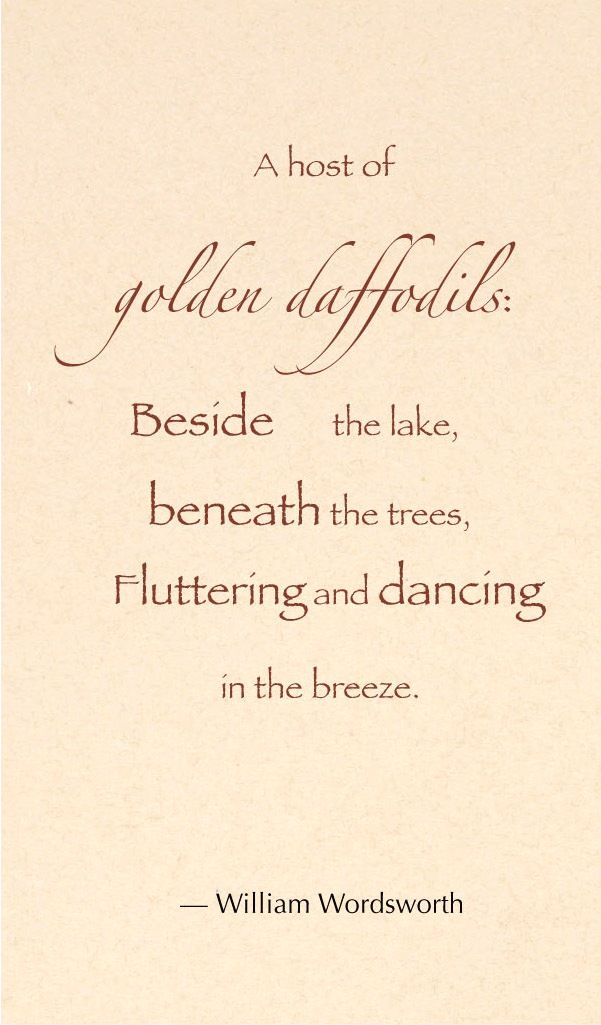 A host of
golden daffodils:
Beside the lake,
beneath the trees,
Fluttering and dancing
in the breeze.
— William Wordsworth